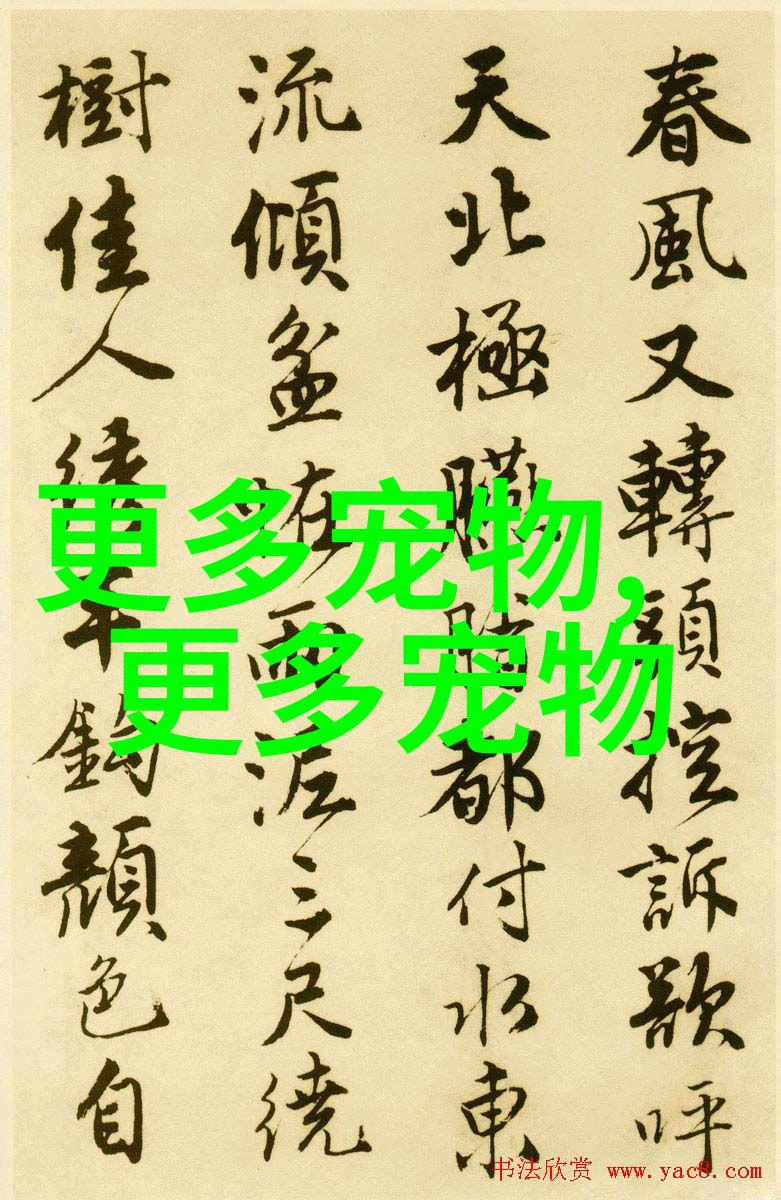 春風又轉控訴呼
天北極臟腑都付水東
流傾盆雨三尺繞
樹佳人半鉤顏色自
更多宠物,
更多宠物
书法欣赏 www.yac8.com